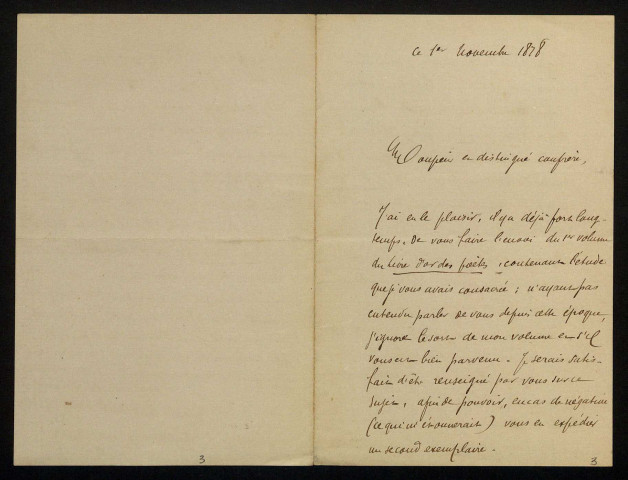 ce 1er Novembre 1878
Monsieur et distingué confrère,
J'ai eu le plaisir, il y a déjà fort long-
temps, de vous faire l'envoi du 1er volume
du Livre d'or des poètes, contenant l'étude
que je vous avais consacrée ; n'ayant pas
entendu parler de vous depuis cette époque,
j'ignore le sort de mon volume et s'il
vous est bien parvenu. Je serais satis-
fait d'être renseigné par vous sur ce
sujet, afin de pouvoir, en cas de négation
(ce qui m'étonnerait) vous en expédier
un second exemplaire.
3
3